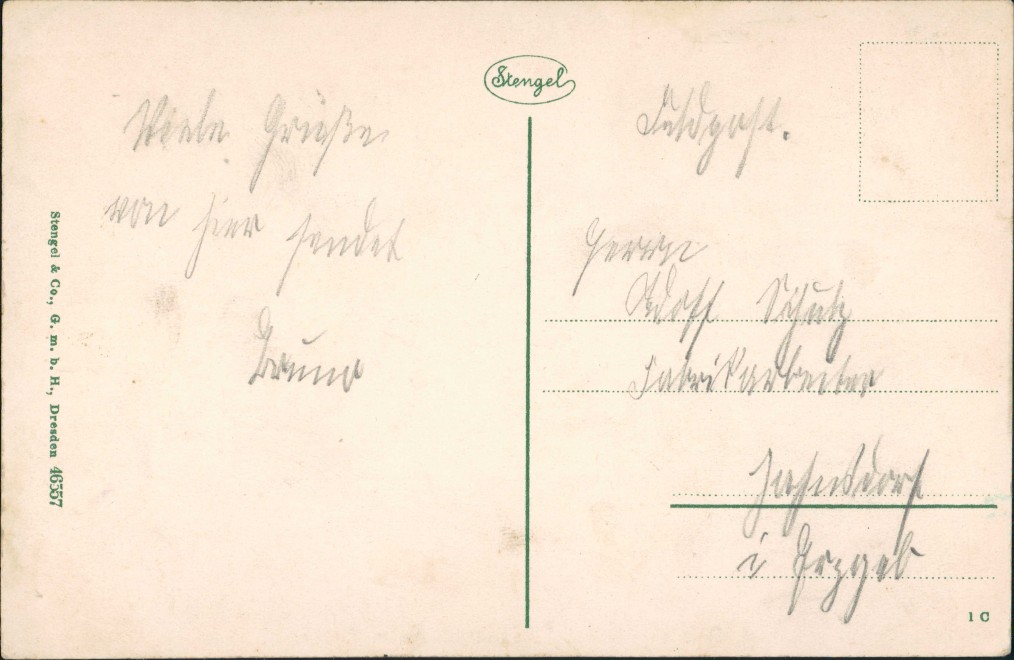 Stengel
Viele Grüße
von hier sendet
Bruno
Feldpost.
Herrn
Adolf Schulz
Fabrikarbeiter
Jahnsdorf
i Erzgeb
Stengel & Co., G. m. b. H., Dresden 46557
1 C